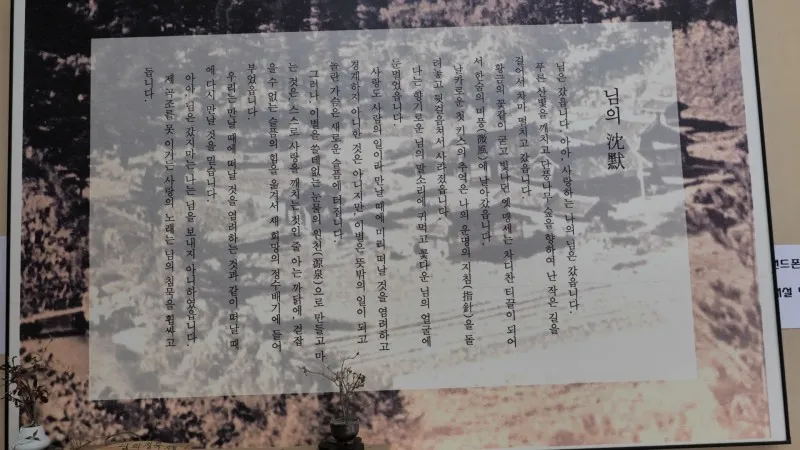 님의 沈默
님은 갔습니다. 아아, 사랑하는 나의 님은 갔습니다.
푸른 산빛을 깨치고 단풍나무 숲을 향하여 난 작은 길을
걸어서 차마 떨치고 갔습니다.
황금의 꽃같이 굳고 빛나던 옛 맹세는 차디찬 티끌이 되어
서 한숨의 미풍(微風)에 날아갔습니다.
날카로운 첫 키스의 추억은 나의 운명의 지침(指針)을 돌
려놓고 뒷걸음쳐서 사라졌습니다.
나는 향기로운 님의 말소리에 귀먹고 꽃다운 님의 얼굴에
눈멀었습니다.
사랑도 사람의 일이라 만날 때에 미리 떠날 것을 염려하고
경계하지 아니한 것은 아니지만, 이별은 뜻밖의 일이 되고
놀란 가슴은 새로운 슬픔에 터집니다.
그러나, 이별을 쓸데없는 눈물의 원천(源泉)으로 만들고 마
는 것은 스스로 사랑을 깨치는 것인 줄 아는 까닭에, 걷잡
을 수 없는 슬픔의 힘을 옮겨서 새 희망의 정수배기에 들어
부었습니다.
우리는 만날 때에 떠날 것을 염려하는 것과 같이 떠날 때
에 다시 만날 것을 믿습니다.
아아, 님은 갔지만 나는 님을 보내지 아니하였습니다.
제 곡조를 못 이기는 사랑의 노래는 님의 침묵을 휩싸고
돕니다.